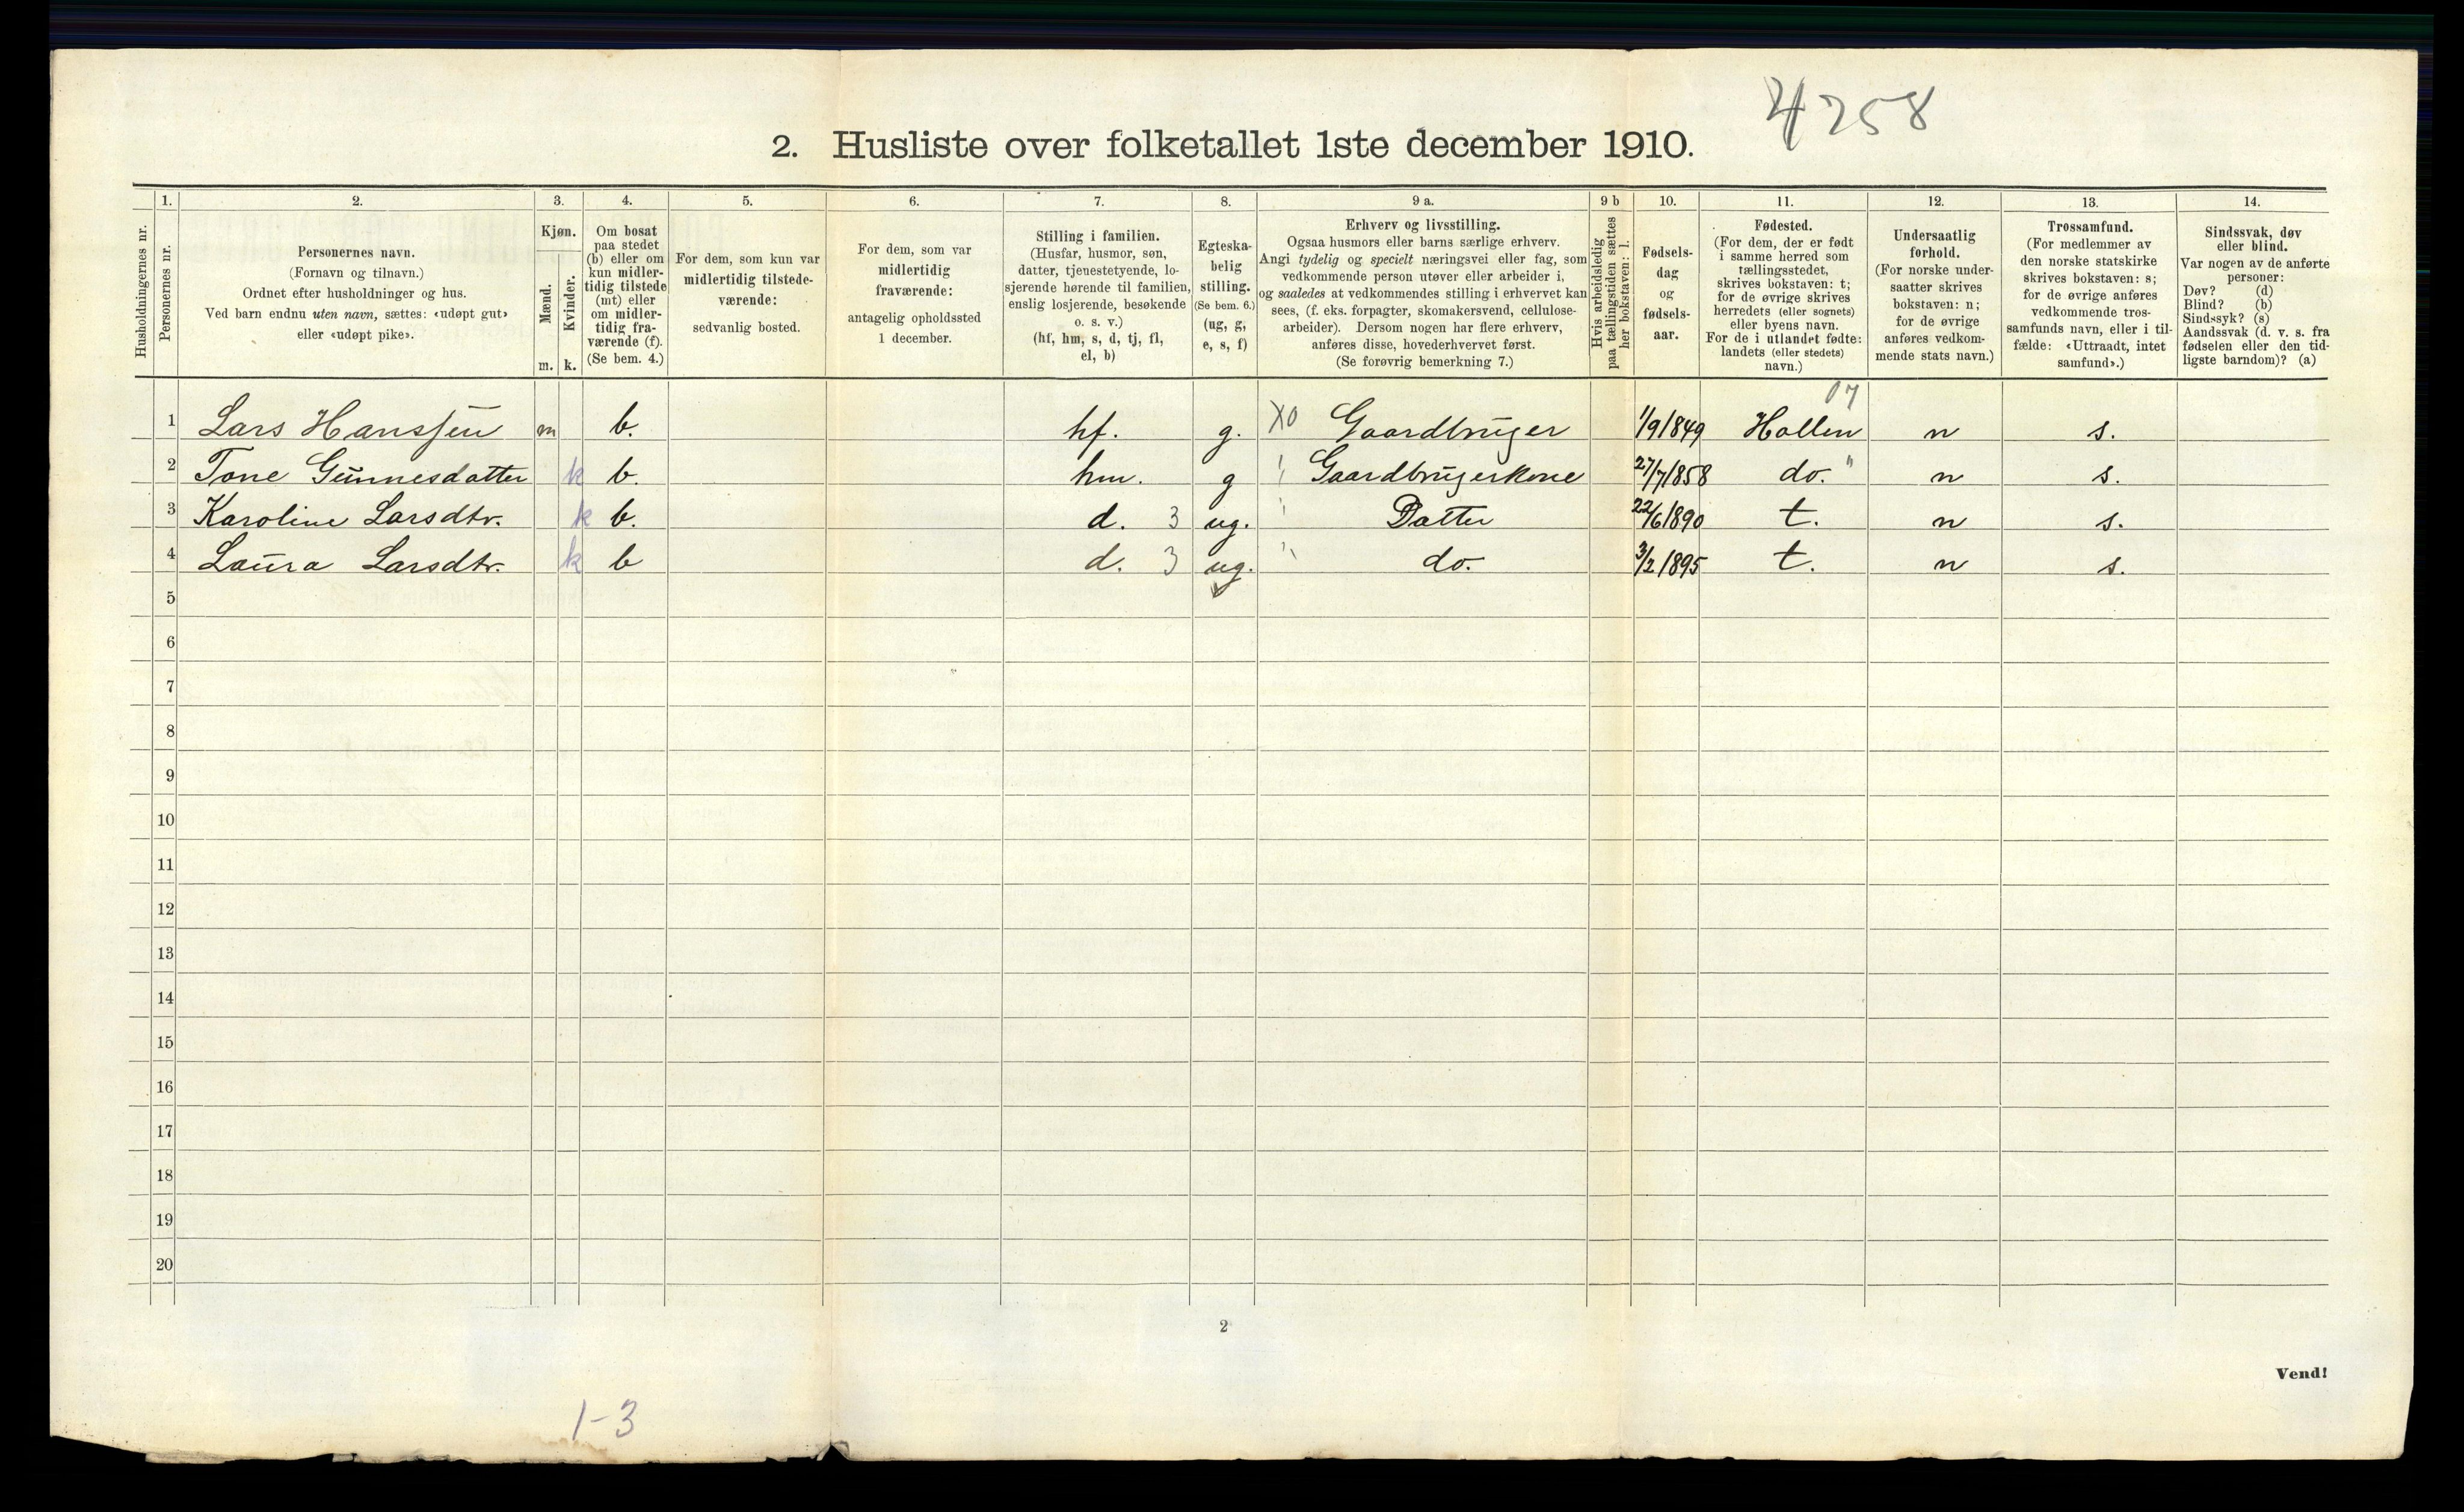 4258
2. Husliste over folketallet 1ste december 1910.
Husholdningernes nr.
1.
Personernes nr.
2.
Personernes navn.
(Fornavn og tilnavn.)
Ordnet efter husholdninger og hus.
Ved barn endnu uten navn, sættes: «udøpt gut»
eller «udøpt pike».
3.
Kjøn.
Mænd.
Kvinder.
m. k.
4.
Om bosat
paa stedet
(b) eller om
kun midler-
tidig tilstede
(mt) eller
om midler-
tidig fra-
værende (f).
(Se bem. 4.)
5.
For dem, som kun var
midlertidig tilstede-
værende:
sedvanlig bosted.
6.
For dem, som var
midlertidig
fraværende:
antagelig opholdssted
1 december.
7.
Stilling i familien.
(Husfar, husmor, søn,
datter, tjenestetyende, lo-
sjerende hørende til familien,
enslig losjerende, besøkende
o. s. v.)
(hf, hm, s, d, tj, fl,
el, b)
8.
Egteska-
belig
stilling.
(Se bem. 6.)
(ug, g,
e, s, f)
9 a.
Erhverv og livsstilling.
Ogsaa husmors eller barns særlige erhverv.
Angi tydelig og specielt næringsvei eller fag, som
vedkommende person utøver eller arbeider i,
og saaledes at vedkommendes stilling i erhvervet kan
sees, (f. eks. forpagter, skomakersvend, cellulose-
arbeider). Dersom nogen har flere erhverv,
anføres disse, hovederhvervet først.
(Se forøvrig bemerkning 7.)
9 b
Hvis arbeidsledig
paa tællingstiden sættes
her bokstaven: l.
10.
Fødsels-
dag
og
fødsels-
aar.
11.
Fødested.
(For dem, der er født
i samme herred som
tællingsstedet,
skrives bokstaven: t;
for de øvrige skrives
herredets (eller sognets)
eller byens navn.
For de i utlandet fødte:
landets (eller stedets)
navn.)
12.
Undersaatlig
forhold.
(For norske under-
saatter skrives
bokstaven: n;
for de øvrige
anføres vedkom-
mende stats navn.)
13.
Trossamfund.
(For medlemmer av
den norske statskirke
skrives bokstaven: s;
for de øvrige anføres
vedkommende tros-
samfunds navn, eller i til-
fælde: «Uttraadt, intet
samfund».)
14.
Sindssvak, døv
eller blind.
Var nogen av de anførte
personer:
Døv? (d)
Blind? (b)
Sindssyk? (s)
Aandssvak (d. v. s. fra
fødselen eller den tid-
ligste barndom)? (a)
07
1 Lars Hanssen m b. hf. g. X0 Gaardbruger 1/9 1849 Hollen n s.
2 Tone Gunnesdatter k b. hm. g " Gaardbrugerkone 27/7 1858 do. " n s.
3 Karoline Larsdtr. k b. d. 3 ug. " Datter 22/6 1890 t. n s.
4 Laura Larsdtr. k b d. 3 ug. " do. 3/2 1895 t. n s.
5
6
7
8
9
10
11
12
13
14
15
16
17
18
19
20
2
Vend!
1-3